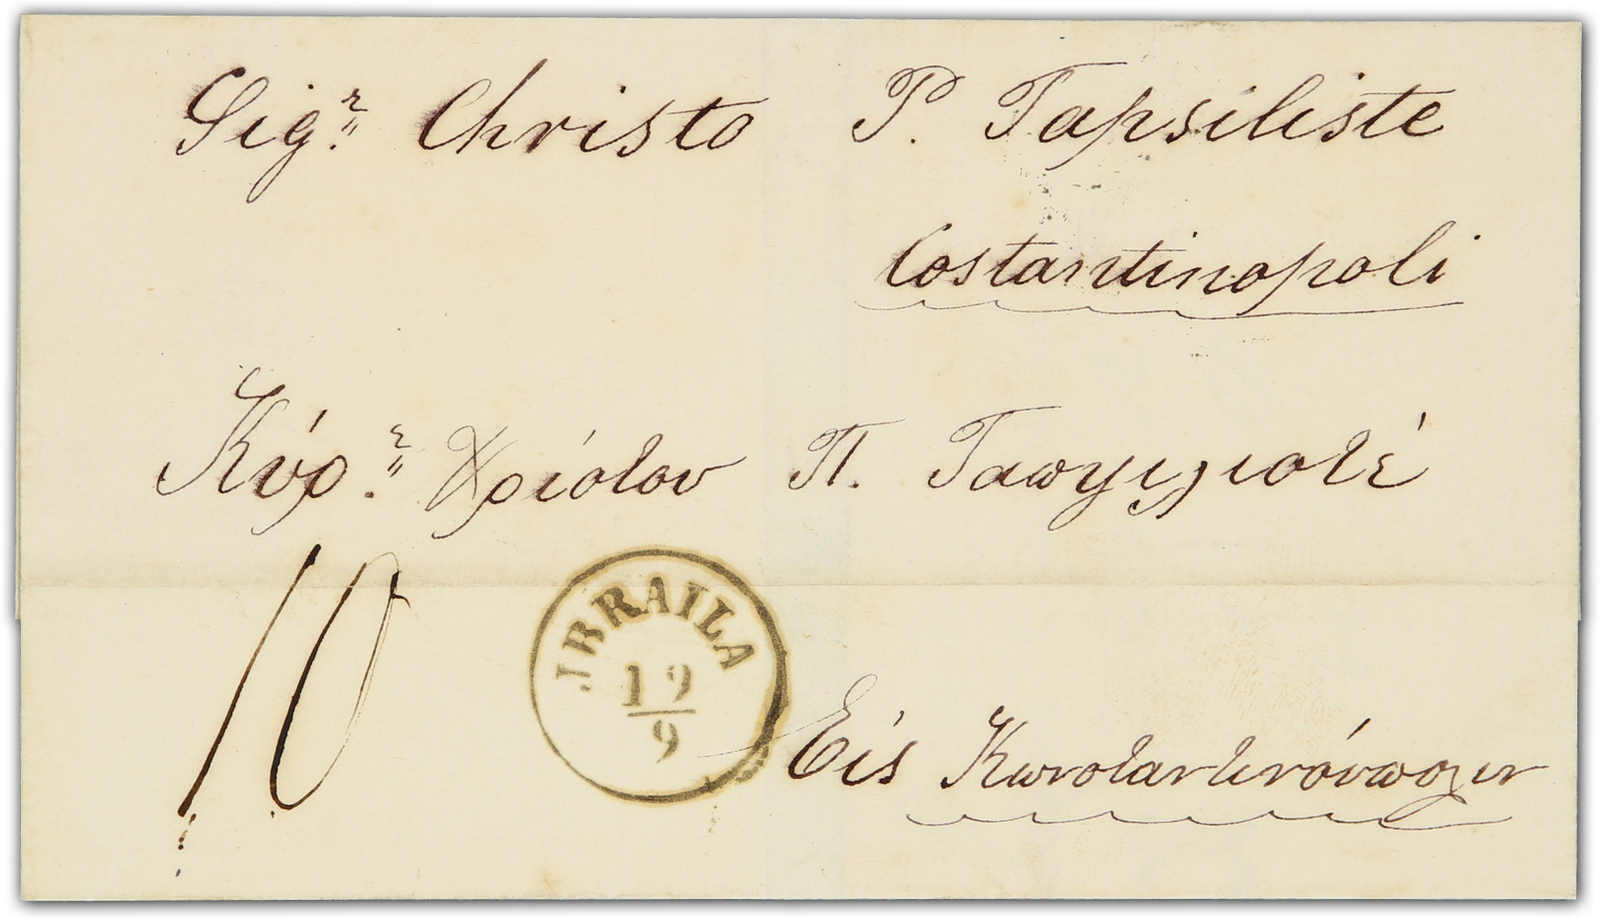 Sig.r Christo P. Tapsiliste
Costantinopoli
Κύρ.ε Χρίστου Π. Ταψιλιστέ
10
JBRAILA
19
9
Εἰς Κωνσταντινούπολιν